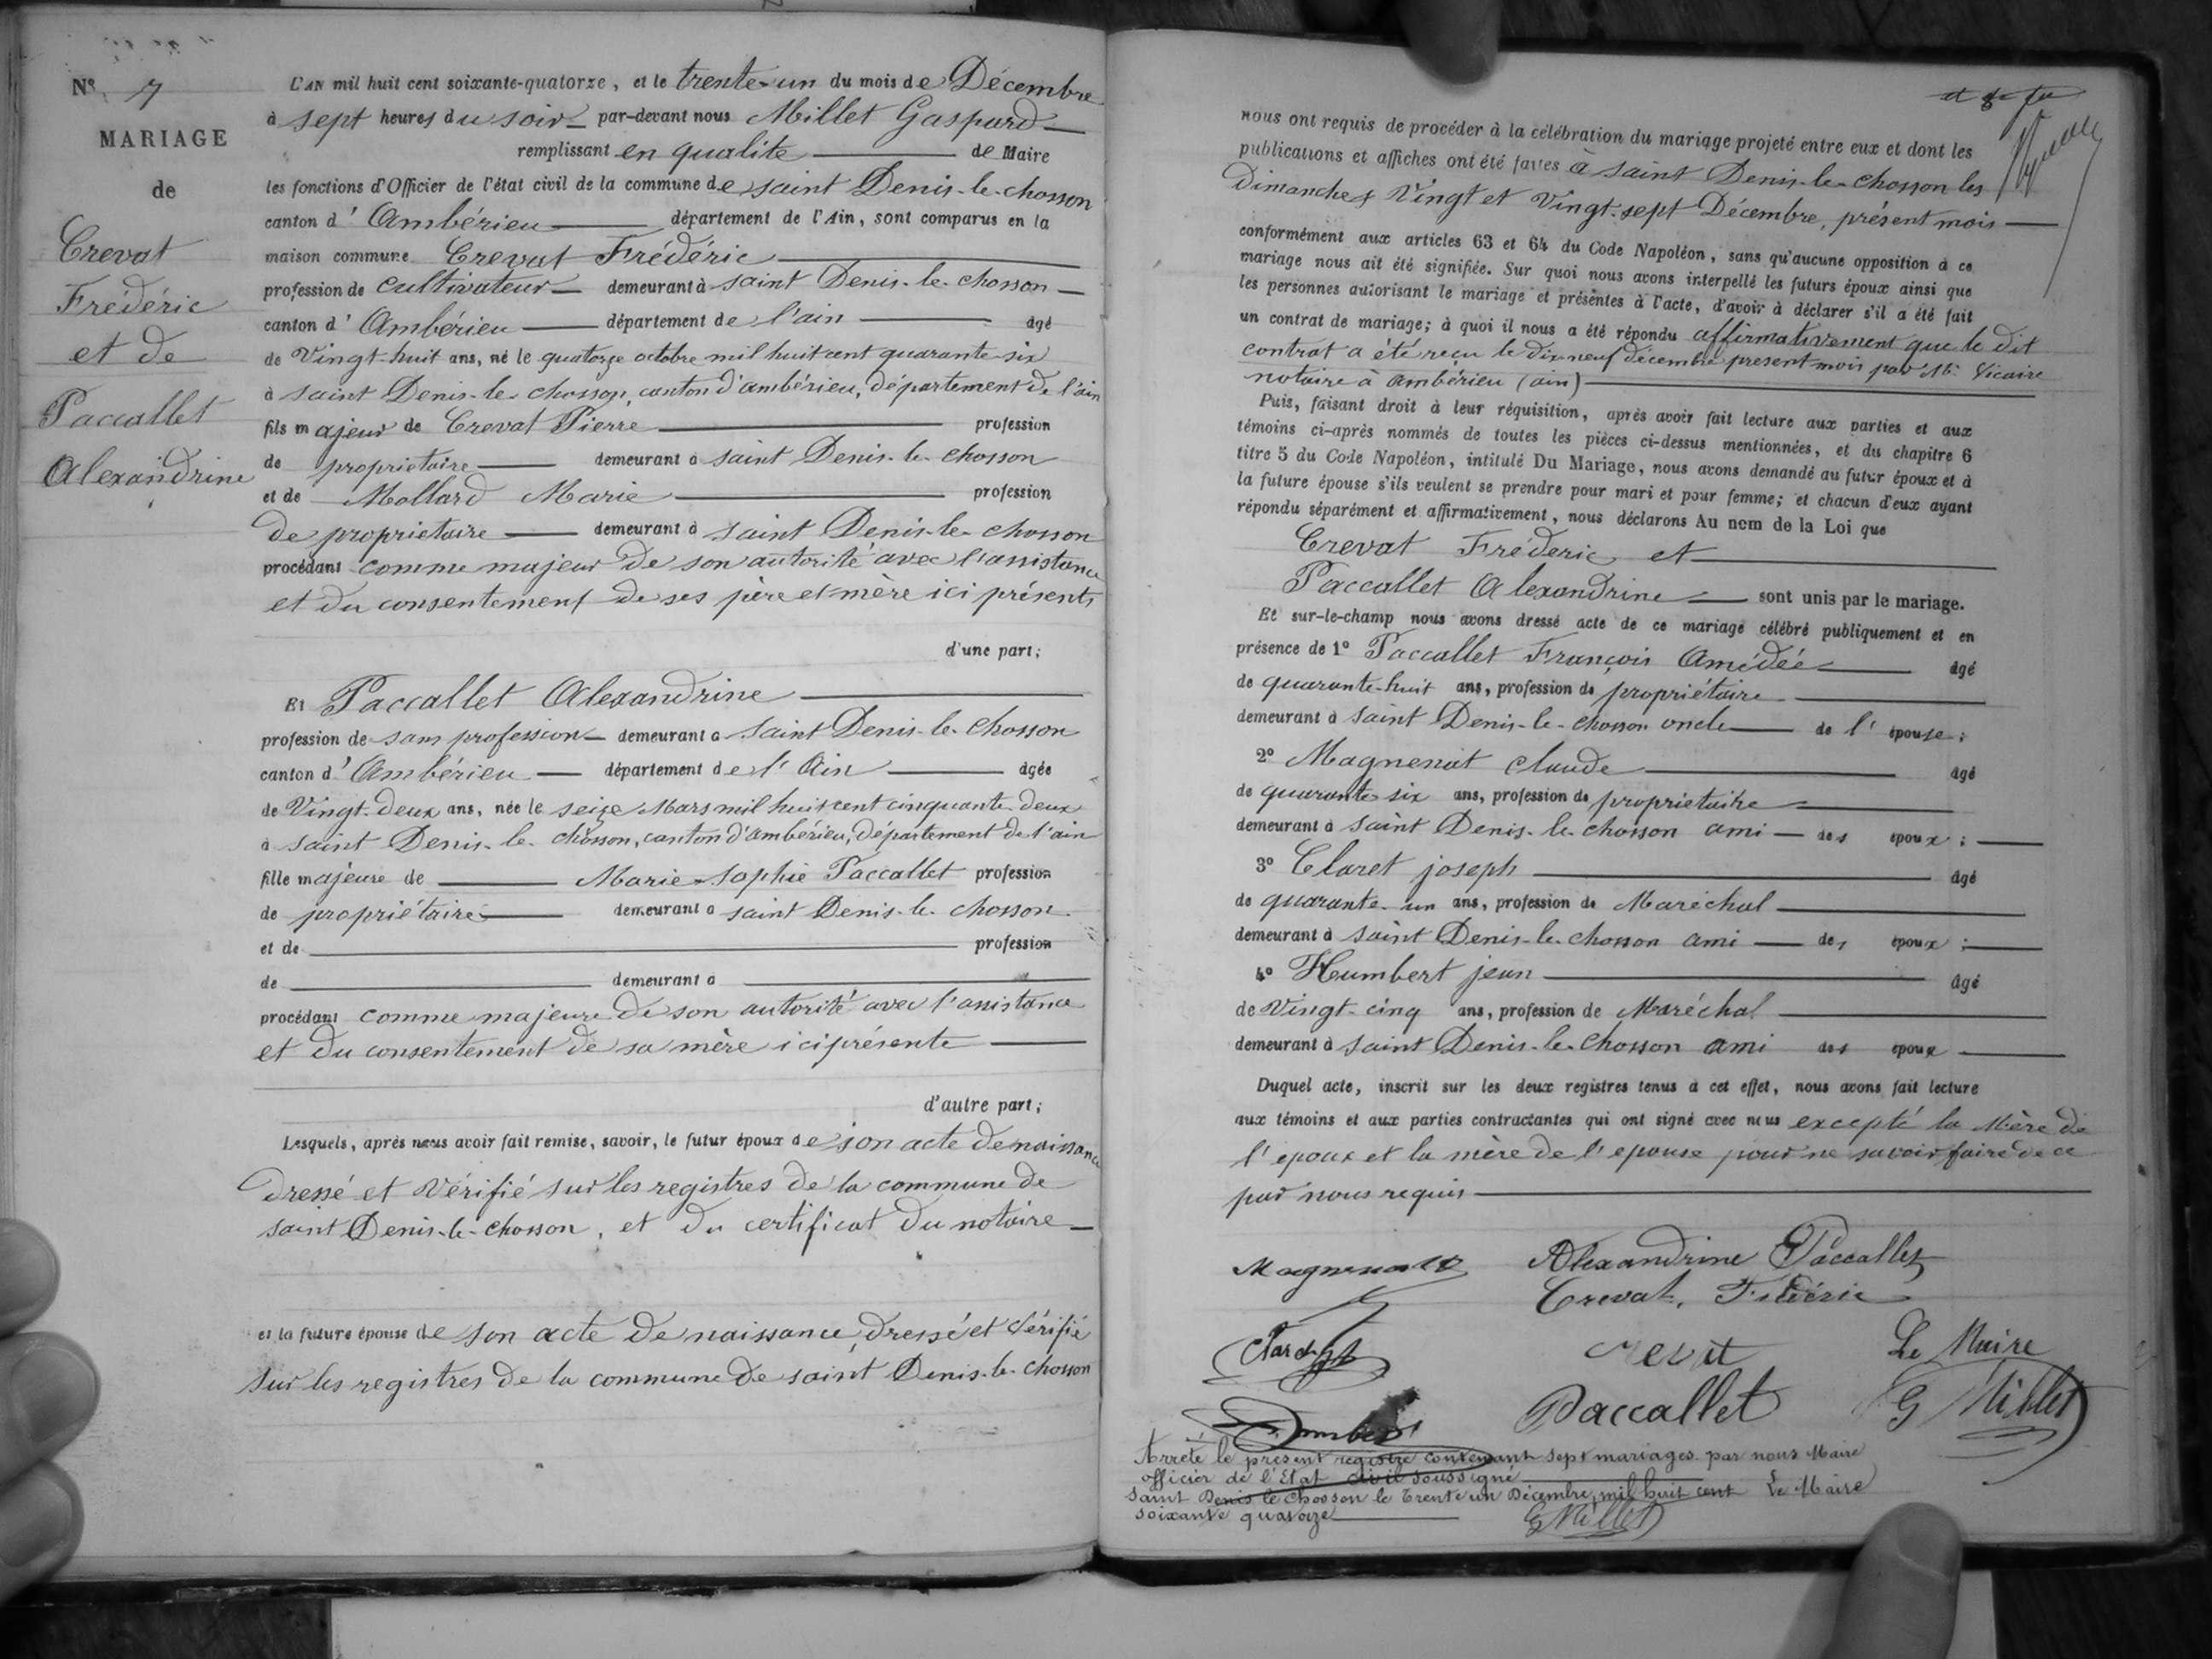 N° 7
MARIAGE
de
Crevat
Frédéric
et de
Paccallet
Alexandrine
L'AN mil huit cent soixante-quatorze, et le trente-un du mois de Décembre
à sept heures du soir par-devant nous Millet Gaspard
remplissant en qualite de Maire
les fonctions d'Officier de l'état civil de la commune de saint Denis-le-chosson
canton d'Ambérieu département de l'Ain, sont comparus en la
maison commune Crevat Frédéric
profession de cultivateur demeurant à saint Denis-le-chosson
canton d'Ambérieu département de l'ain âgé
de Vingt-huit ans, né le quatorze octobre mil huit cent quarante-six
à saint Denis-le-chosson, canton d'ambérieu, département de l'ain
fils majeur de Crevat Pierre profession
de proprietaire demeurant à saint Denis-le-chosson
et de Mollard Marie profession
de proprietaire demeurant à saint Denis-le-chosson
procédant comme majeur de son autorité avec l'assistance
et du consentement de ses père et mère ici présents
d'une part;
Et Paccallet Alexandrine
profession de sans profession demeurant à saint Denis-le-chosson
canton d'Ambérieu département de l'Ain âgée
de Vingt-deux ans, née le seize Mars mil huit cent cinquante-deux
à saint Denis-le-chosson, canton d'ambérieu, département de l'ain
fille majeure de Marie-Sophie Paccallet profession
de propriétaire demeurant à saint Denis-le-chosson
et de profession
de demeurant à
procédant comme majeure de son autorité avec l'assistance
et du consentement de sa mère ici présente
d'autre part;
Lesquels, après nous avoir fait remise, savoir, le futur époux de son acte de naissance
dressé et vérifié sur les registres de la commune de
saint Denis-le-chosson, et du certificat du notaire
et la future épouse de son acte de naissance, dressé et vérifié
sur les registres de la commune de saint Denis-le-chosson
nous ont requis de procéder à la célébration du mariage projeté entre eux et dont les
publications et affiches ont été faites à saint Denis-le-chosson les
Dimanches Vingt et Vingt-sept Décembre, présent mois
conformément aux articles 63 et 64 du Code Napoléon, sans qu'aucune opposition à ce
mariage nous ait été signifiée. Sur quoi nous avons interpellé les futurs époux ainsi que
les personnes autorisant le mariage et présentes à l'acte, d'avoir à déclarer s'il a été fait
un contrat de mariage; à quoi il nous a été répondu affirmativement que le dit
contrat a été reçu le dix-neuf décembre present mois par Me Vicaire
notaire à ambérieu (ain)
Puis, faisant droit à leur réquisition, après avoir fait lecture aux parties et aux
témoins ci-après nommés de toutes les pièces ci-dessus mentionnées, et du chapitre 6
titre 5 du Code Napoléon, intitulé Du Mariage, nous avons demandé au futur époux et à
la future épouse s'ils veulent se prendre pour mari et pour femme; et chacun d'eux ayant
répondu séparément et affirmativement, nous déclarons Au nom de la Loi que
Crevat Fréderic et
Paccallet Alexandrine sont unis par le mariage.
Et sur-le-champ nous avons dressé acte de ce mariage célébré publiquement et en
présence de 1° Paccallet François Amédée âgé
de quarante-huit ans, profession de propriétaire
demeurant à saint Denis-le-chosson oncle de l'épouse;
2° Magnenat claude âgé
de quarante-six ans, profession de proprietaire
demeurant à saint Denis-le-chosson ami des époux;
3° Claret joseph âgé
de quarante-un ans, profession de Maréchal
demeurant à saint Denis-le-chosson ami des époux;
4° Humbert jean âgé
de Vingt-cinq ans, profession de Maréchal
demeurant à saint Denis-le-chosson ami des époux
Duquel acte, inscrit sur les deux registres tenus à cet effet, nous avons fait lecture
aux témoins et aux parties contractantes qui ont signé avec nous excepté la Mère de
l'epoux et la mère de l'epouse pour ne savoir faire de ce
par nous requis
Magnenat Alexandrine Paccallet
Crevat, Frédéric
Claret Crevat Le Maire
Humbert Paccallet G Millet
Arrêté le present registre contenant sept mariages par nous Maire
officier de l'Etat civil soussigné
Saint Denis le Chosson le trente un Décembre mil huit cent Le Maire
soixante quatorze G Millet